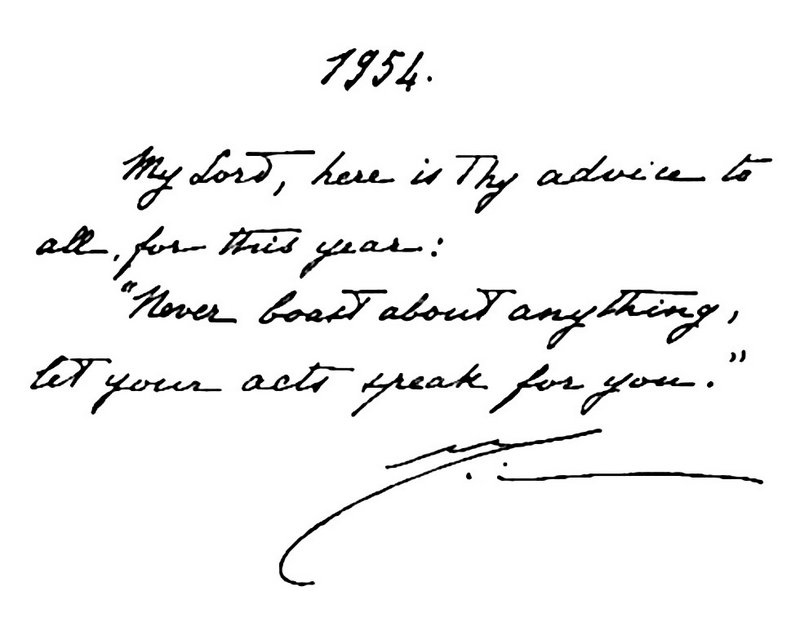 1954.
My Lord, here is Thy advice to
all, for this year:
"Never boast about anything,
let your acts speak for you."